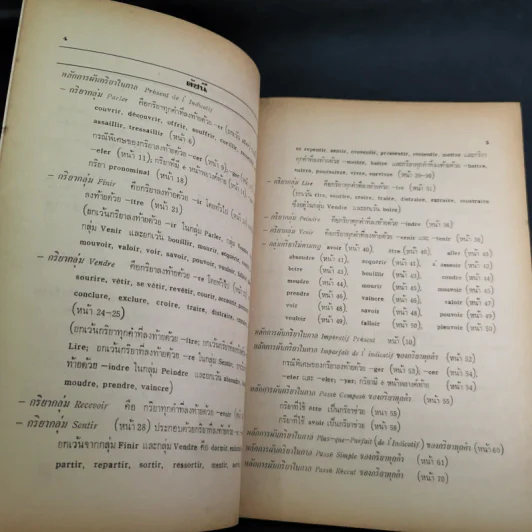 4
ดัชนี
หลักการผันกริยาในกาล Présent de l' Indicatif
– กริยากลุ่ม Parler คือกริยาทุกคำที่ลงท้ายด้วย –er
couvrir, découvrir, offrir, souffrir, cueillir,
assaillir, tressaillir (หน้า 6)
กรณีพิเศษของกริยาลงท้ายด้วย –cer (หน้า 9)
–eler (หน้า 11); กริยาที่มี e
กริยา pronominal (หน้า 18)
– กริยากลุ่ม Finir คือกริยาลงท้ายด้วย –ir โดยทั่วไป
ลงท้ายด้วย –itre (หน้า 21)
(ยกเว้นกริยาลงท้ายด้วย –ir ในกลุ่ม Parler, กลุ่ม
กลุ่ม Venir และยกเว้น bouillir, mourir, acquérir,
mouvoir, valoir, voir, savoir, pouvoir, vouloir,
– กริยากลุ่ม Vendre คือกริยาลงท้ายด้วย –re โดยทั่วไป
sourire, vêtir, se vêtir, revêtir, courir, accourir,
conclure, exclure, croire, traire, distraire,
(หน้า 24–25)
(ยกเว้นกริยาทุกคำที่ลงท้ายด้วย –itre;
Lire; ยกเว้นกริยาที่ลงท้ายด้วย –re ในกลุ่ม Sentir,
ท้ายด้วย –indre ในกลุ่ม Peindre และยกเว้น
moudre, prendre, vaincre)
– กริยากลุ่ม Recevoir คือ กริยาทุกคำที่ลงท้ายด้วย
– กริยากลุ่ม Sentir (หน้า 28) ประกอบด้วยกริยาที่ลงท้ายด้วย
ยกเว้นจากกลุ่ม Finir และกลุ่ม Vendre คือ dormir,
partir, repartir, sortir, ressortir, mentir,
5
se repentir, servir, promettre, remettre, mettre และกริยา
ทุกคำที่ลงท้ายด้วย –mettre, battre และกริยาลงท้ายด้วย –battre,
suivre, poursuivre, vivre, survivre (หน้า 29–30)
– กริยากลุ่ม Lire คือกริยาทุกคำที่ลงท้ายด้วย –ire (หน้า 31)
(ยกเว้น écrire, sourire, croire, traire, distraire, extraire, soustraire
ซึ่งอยู่ในกลุ่ม Vendre และยกเว้น boire)
– กริยากลุ่ม Peindre คือกริยาทุกคำที่ลงท้ายด้วย –indre (หน้า 36)
– กริยากลุ่ม Venir คือกริยาทุกคำที่ลงท้ายด้วย –venir และ –tenir (หน้า 38)
– กลุ่มกริยาไม่ตามกฎ avoir (หน้า 40), être (หน้า 40), aller (หน้า 40)
absoudre (หน้า 41), acquérir (หน้า 41), s' asseoir (หน้า 42)
boire (หน้า 43), bouillir (หน้า 43), coudre (หน้า 44)
moudre (หน้า 44), mourir (หน้า 45), mouvoir (หน้า 45)
prendre (หน้า 46), vaincre (หน้า 46), valoir (หน้า 47)
voir (หน้า 48), savoir (หน้า 48), pouvoir (หน้า 49)
vouloir (หน้า 49), falloir (หน้า 50), pleuvoir (หน้า 50)
หลักการผันกริยาในกาล Impératif Présent (หน้า 50)
หลักการผันกริยาในกาล Imparfait de l' Indicatif ของกริยาทุกคำ (หน้า 53)
กรณีพิเศษของกริยาลงท้ายด้วย –ger (หน้า 53); –cer (หน้า 54),
–eler และ –eter, –yer; กริยามี e หน้าพยางค์ท้าย (หน้า 54)
หลักการผันกริยาในกาล Passé Composé ของกริยาทุกคำ (หน้า 55)
กริยาที่ใช้ être เป็นกริยาช่วย (หน้า 55)
กริยาที่ใช้ avoir เป็นกริยาช่วย (หน้า 58)
หลักการผันกริยาในกาล Plus–que–Parfait (de l' Indicatif) ของกริยาทุกคำ (หน้า 60)
หลักการผันกริยาในกาล Passé Simple ของกริยาทุกคำ (หน้า 61)
หลักการผันกริยาในกาล Passé Récent ของกริยาทุกคำ (หน้า 70)